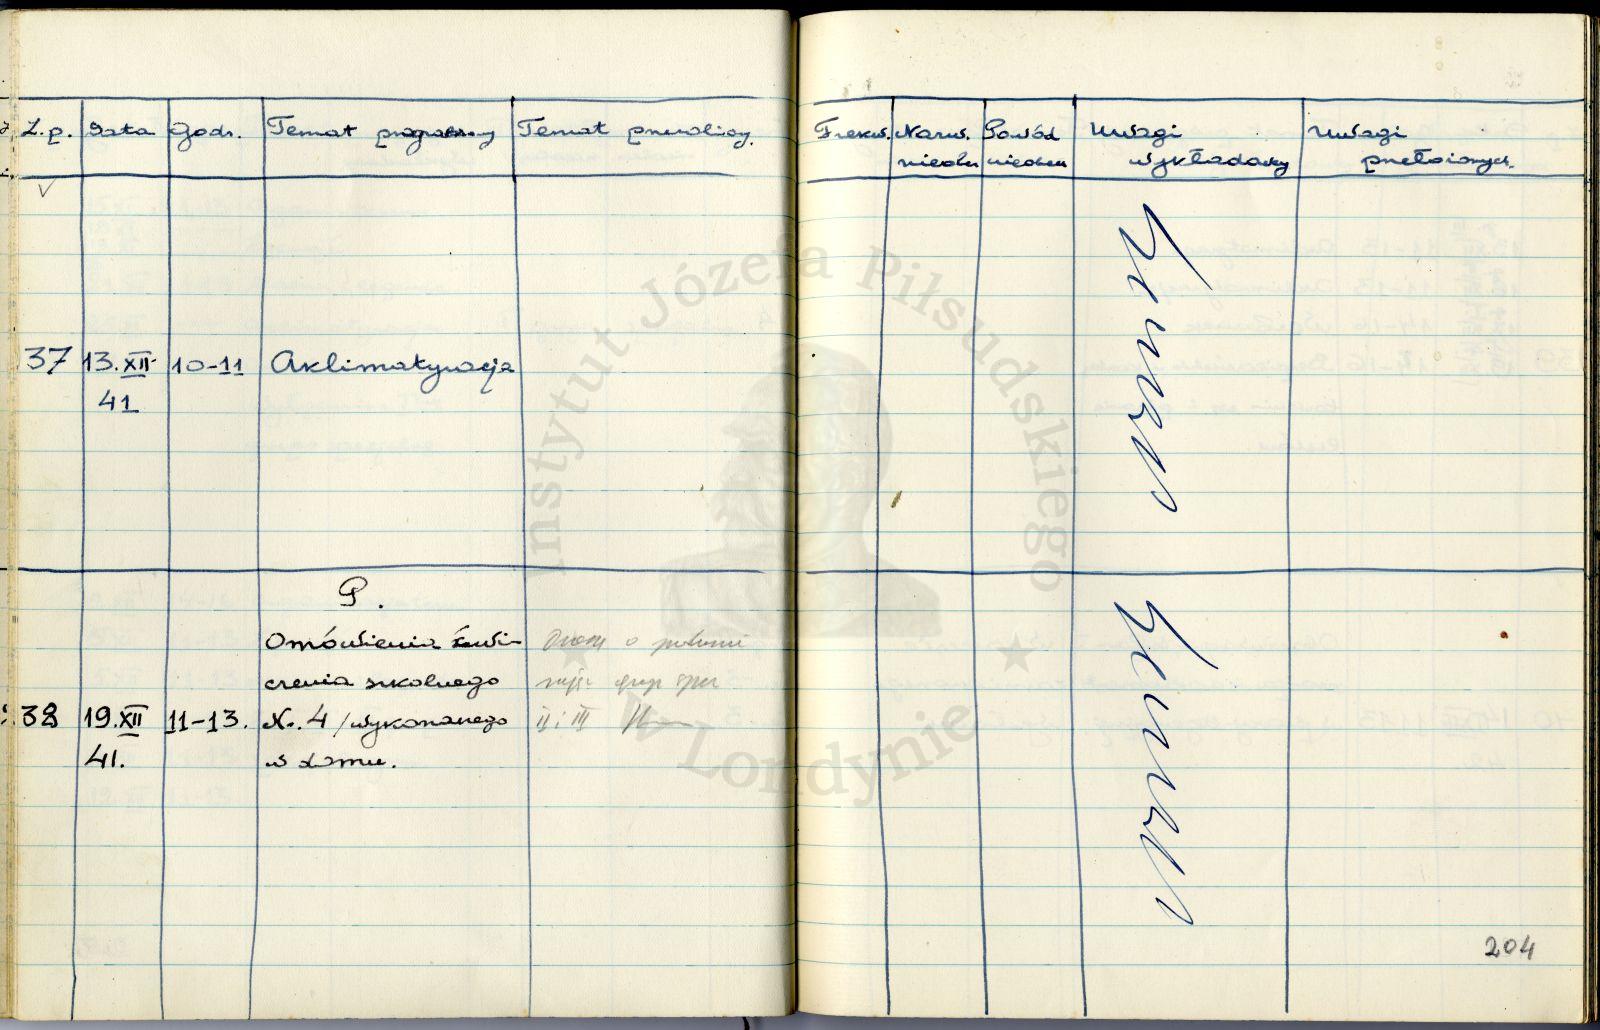 L.p. Data Godz. Temat programowy Temat przerobiony.
Frekw. Nazw. Powód Uwagi Uwagi
nieobec nieobec wykładowcy przełożonych.
37 13.XII 10-11 Aklimatyzacja
41
P.
Omówienia ćwi-
czenia szkolnego
o
grup
38 19.XII 11-13. Nr. 4 /wykonanego
II i III
41. w domu.
204
Instytut Józefa Piłsudskiego
w Londynie